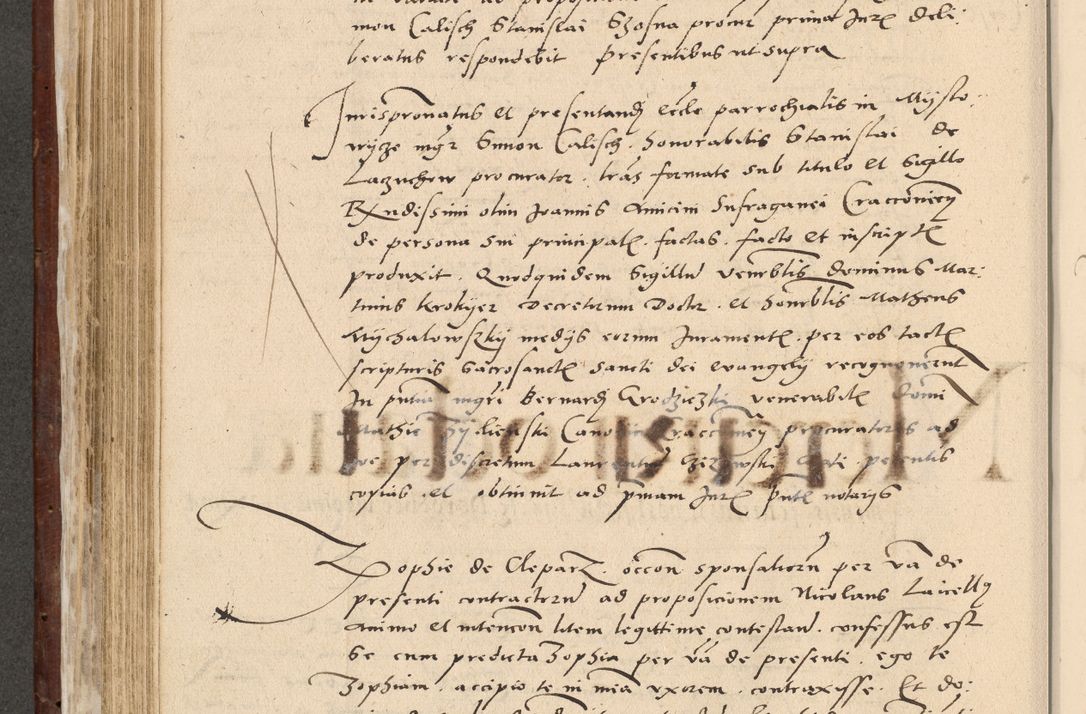 mon Calisch Stanislai Szosna procur prima Jur deli
beratus respondebit presentibus ut supra
Jurispronatus et presentand eccle parrochialis in Mysto
wycze mgr Simon Calisch honorabilis Stanislai de
Lazuchow procurator lras formate sub titulo et sigillo
Rndissimi olim Joannis Amicini Suffraganei Cracconien
de persona sui principal factas facto et inscript
produxit Quodquidem sigillu venerblis dominus Mar
tinus Krokyer Decretorum Doctr et honrblis Matheus
Mychalowszky medys eorum Jurament per eos tact
scripturis sacrosanct Sancti dei ewangely recognoverunt
In pntia mgri Bernard Grodziczki venerabil domi
Mathie Canonici Cracconien procuratoris ad
per discretum Laurentiu petentis
copias et obtinuit ad pmam Jur pnt notarys
Zophie de Clepar occon sponsaliorum per va de
presenti contractoru ad proposicionem Nicolaus Laicell
Animo et intencon litem legittime contestand confessus est
se cum predicta Zophia per va de presenti ego te
Zophiam accipio te in mea uxorem contraxisse Et do